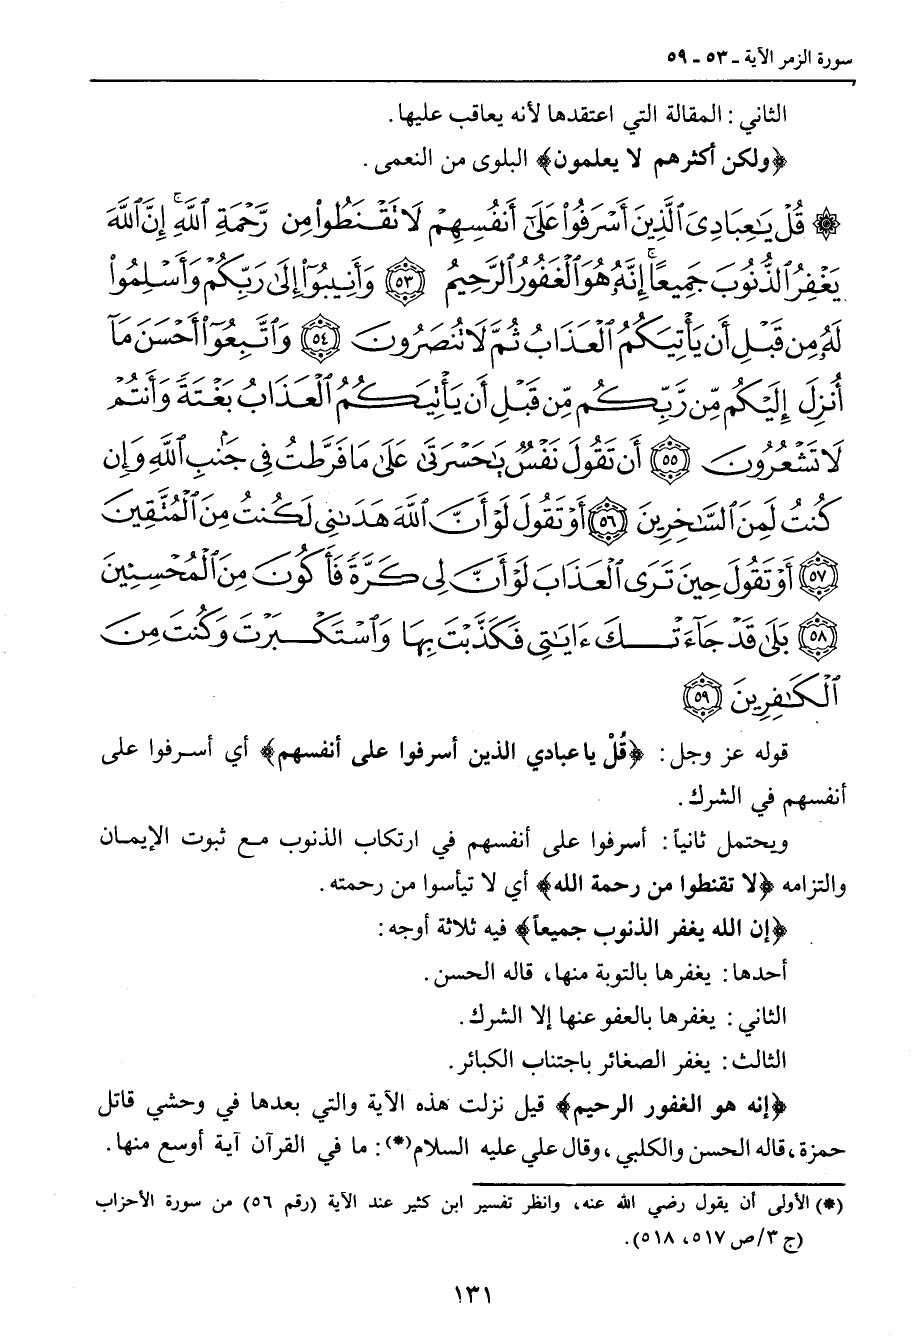 سورة الزمر الآية ـ ٥٣ ـ ٥٩
الثاني : المقالة التي اعتقدها لأنه يعاقب عليها .
﴿ولكن أكثرهم لا يعلمون﴾ البلوى من النعمى .
۞ قُلْ يَـٰعِبَادِىَ ٱلَّذِينَ أَسْرَفُوا۟ عَلَىٰٓ أَنفُسِهِمْ لَا تَقْـنَطُوا۟ مِن رَّحْمَةِ ٱللَّهِ ۚ إِنَّ ٱللَّهَ
يَغْفِرُ ٱلذُّنُوبَ جَمِيعًا ۚ إِنَّهُۥ هُوَ ٱلْغَفُورُ ٱلرَّحِيمُ ٥٣ وَأَنِيبُوٓا۟ إِلَىٰ رَبِّكُمْ وَأَسْلِمُوا۟
لَهُۥ مِن قَبْلِ أَن يَأْتِيَكُمُ ٱلْعَذَابُ ثُمَّ لَا تُنصَرُونَ ٥٤ وَٱتَّبِعُوٓا۟ أَحْسَنَ مَآ
أُنزِلَ إِلَيْكُم مِّن رَّبِّكُم مِّن قَبْلِ أَن يَأْتِيَكُمُ ٱلْعَذَابُ بَغْتَةً وَأَنتُمْ
لَا تَشْعُرُونَ ٥٥ أَن تَقُولَ نَفْسٌ يَـٰحَسْرَتَىٰ عَلَىٰ مَا فَرَّطتُ فِى جَنۢبِ ٱللَّهِ وَإِن
كُنتُ لَمِنَ ٱلسَّـٰخِرِينَ ٥٦ أَوْ تَقُولَ لَوْ أَنَّ ٱللَّهَ هَدَىٰنِى لَكُنتُ مِنَ ٱلْمُتَّقِينَ
٥٧ أَوْ تَقُولَ حِينَ تَرَى ٱلْعَذَابَ لَوْ أَنَّ لِى كَرَّةً فَأَكُونَ مِنَ ٱلْمُحْسِنِينَ
٥٨ بَلَىٰ قَدْ جَآءَتْكَ ءَايَـٰتِى فَكَذَّبْتَ بِهَا وَٱسْتَكْبَرْتَ وَكُنتَ مِنَ
ٱلْكَـٰفِرِينَ ٥٩
قوله عز وجل : ﴿قُلْ يا عبادي الذين أسرفوا على أنفسهم﴾ أي أسرفوا على
أنفسهم في الشرك .
ويحتمل ثانياً : أسرفوا على أنفسهم في ارتكاب الذنوب مع ثبوت الإيمان
والتزامه ﴿لا تقنطوا من رحمة الله﴾ أي لا تيأسوا من رحمته .
﴿إن الله يغفر الذنوب جميعاً﴾ فيه ثلاثة أوجه :
أحدها : يغفرها بالتوبة منها، قاله الحسن .
الثاني : يغفرها بالعفو عنها إلا الشرك .
الثالث : يغفر الصغائر باجتناب الكبائر .
﴿إنه هو الغفور الرحيم﴾ قيل نزلت هذه الآية والتي بعدها في وحشي قاتل
حمزة، قاله الحسن والكلبي ، وقال علي عليه السلام(*) : ما في القرآن آية أوسع منها .
(*) الأولى أن يقول رضي الله عنه، وانظر تفسير ابن كثير عند الآية (رقم ٥٦) من سورة الأحزاب
(ج ٣/ص ٥١٧، ٥١٨).
١٣١